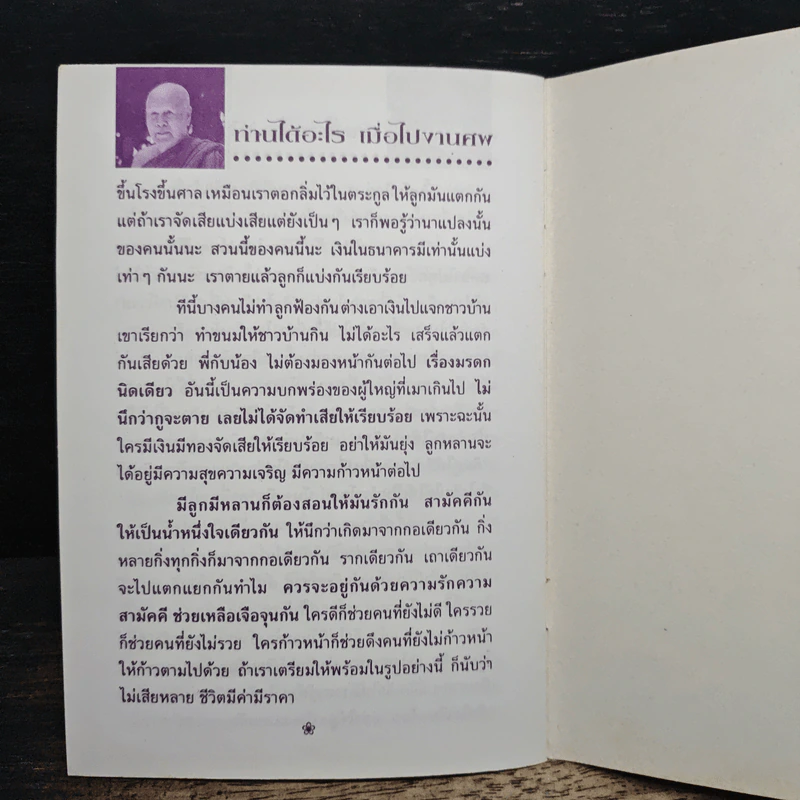 ท่านได้อะไร เมื่อไปงานศพ
ขึ้นโรงขึ้นศาล เหมือนเราตอกลิ่มไว้ในตระกูล ให้ลูกมันแตกกัน
แต่ถ้าเราจัดเสียแบ่งเสียแต่ยังเป็นๆ เราก็พอรู้ว่านาแปลงนั้น
ของคนนั้นนะ สวนนี้ของคนนี้นะ เงินในธนาคารมีเท่านั้นแบ่ง
เท่าๆ กันนะ เราตายแล้วลูกก็แบ่งกันเรียบร้อย
ทีนี้บางคนไม่ทำลูกฟ้องกัน ต่างเอาเงินไปแจกชาวบ้าน
เขาเรียกว่า ทำขนมให้ชาวบ้านกิน ไม่ได้อะไร เสร็จแล้วแตก
กันเสียด้วย พี่กับน้อง ไม่ต้องมองหน้ากันต่อไป เรื่องมรดก
นิดเดียว อันนี้เป็นความบกพร่องของผู้ใหญ่ที่เมาเกินไป ไม่
นึกว่ากูจะตาย เลยไม่ได้จัดทำเสียให้เรียบร้อย เพราะฉะนั้น
ใครมีเงินมีทองจัดเสียให้เรียบร้อย อย่าให้มันยุ่ง ลูกหลานจะ
ได้อยู่มีความสุขความเจริญ มีความก้าวหน้าต่อไป
มีลูกมีหลานก็ต้องสอนให้มันรักกัน สามัคคีกัน
ให้เป็นน้ำหนึ่งใจเดียวกัน ให้นึกว่าเกิดมาจากกอเดียวกัน กิ่ง
หลายกิ่งทุกกิ่งก็มาจากกอเดียวกัน รากเดียวกัน เถาเดียวกัน
จะไปแตกแยกกันทำไม ควรจะอยู่กันด้วยความรักความ
สามัคคี ช่วยเหลือเจือจุนกัน ใครดีก็ช่วยคนที่ยังไม่ดี ใครรวย
ก็ช่วยคนที่ยังไม่รวย ใครก้าวหน้าก็ช่วยดึงคนที่ยังไม่ก้าวหน้า
ให้ก้าวตามไปด้วย ถ้าเราเตรียมให้พร้อมในรูปอย่างนี้ ก็นับว่า
ไม่เสียหลาย ชีวิตมีค่ามีราคา